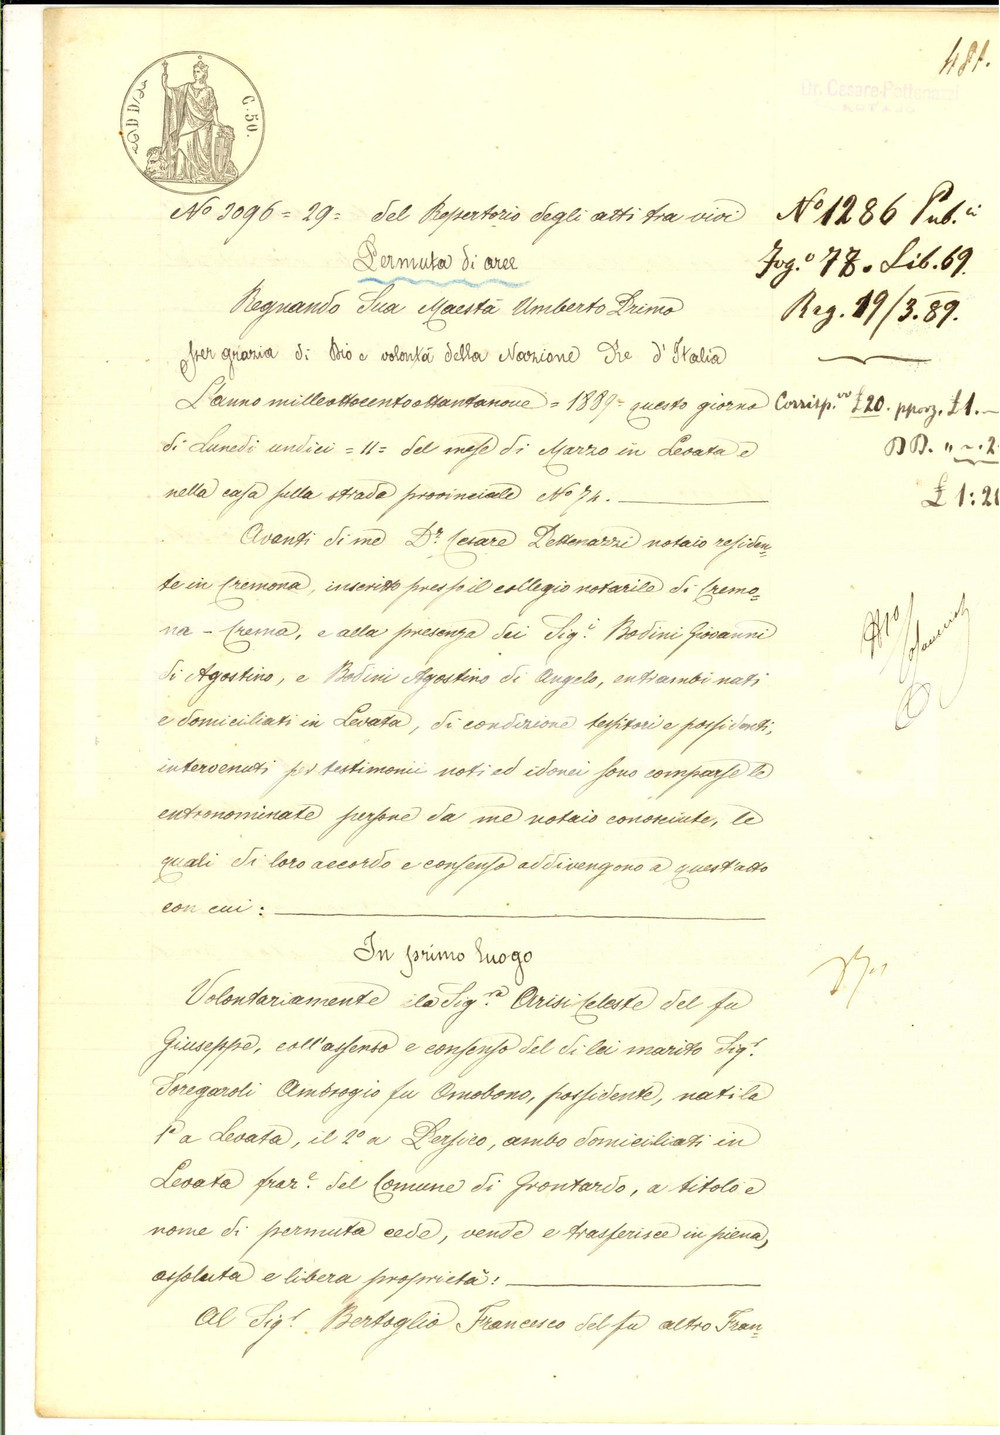 481.
Dr. Cesare Pettenazzi
NOTAJO
C. 50.
No 3096 = 29 = del Repertorio degli atti tra vivi
Permuta di aree
Regnando Sua Maestà Umberto Primo
per grazia di Dio e volontà della Nazione Re d'Italia
L'anno milleottocentottantanove = 1889 = questo giorno
di Lunedi undici = 11 = del mese di Marzo in Levata e
nella casa sulla strada provinciale No 74.
Avanti di me Dr. Cesare Pettenazzi notaio residen-
te in Cremona, inscritto presso il collegio notarile di Cremo-
na - Crema, e alla presenza dei Sigi. Bodini Giovanni
di Agostino, e Bodini Agostino di Angelo, entrambi nati
e domiciliati in Levata, di condizione tessitori e possidenti,
intervenuti per testimonii noti ed idonei sono comparse le
entronominate persone da me notaio conosciute, le
quali di loro accordo e consenso addivengono a quest'atto
con cui:
In primo luogo
Volontariamente la Sig.ra Arisi Celeste del fu
Giuseppe, coll'assenso e consenso del di lei marito Sigr.
Soregaroli Ambrogio fu Omobono, possidente, nati la
1a a Levata, il 2o a Persico, ambo domiciliati in
Levata fraze. del Comune di Grontardo, a titolo e
nome di permuta cede, vende e trasferisce in piena,
assoluta e libera proprietà:
Al Sigr. Bertoglio Francesco del fu altro Fran-
No 1286 Pub.ci
Fog.o 77. Lib. 69.
Reg. 19/3.89.
Corrisp.vo £20. pporz. £1.—
DD. " ~.2
£ 1:20